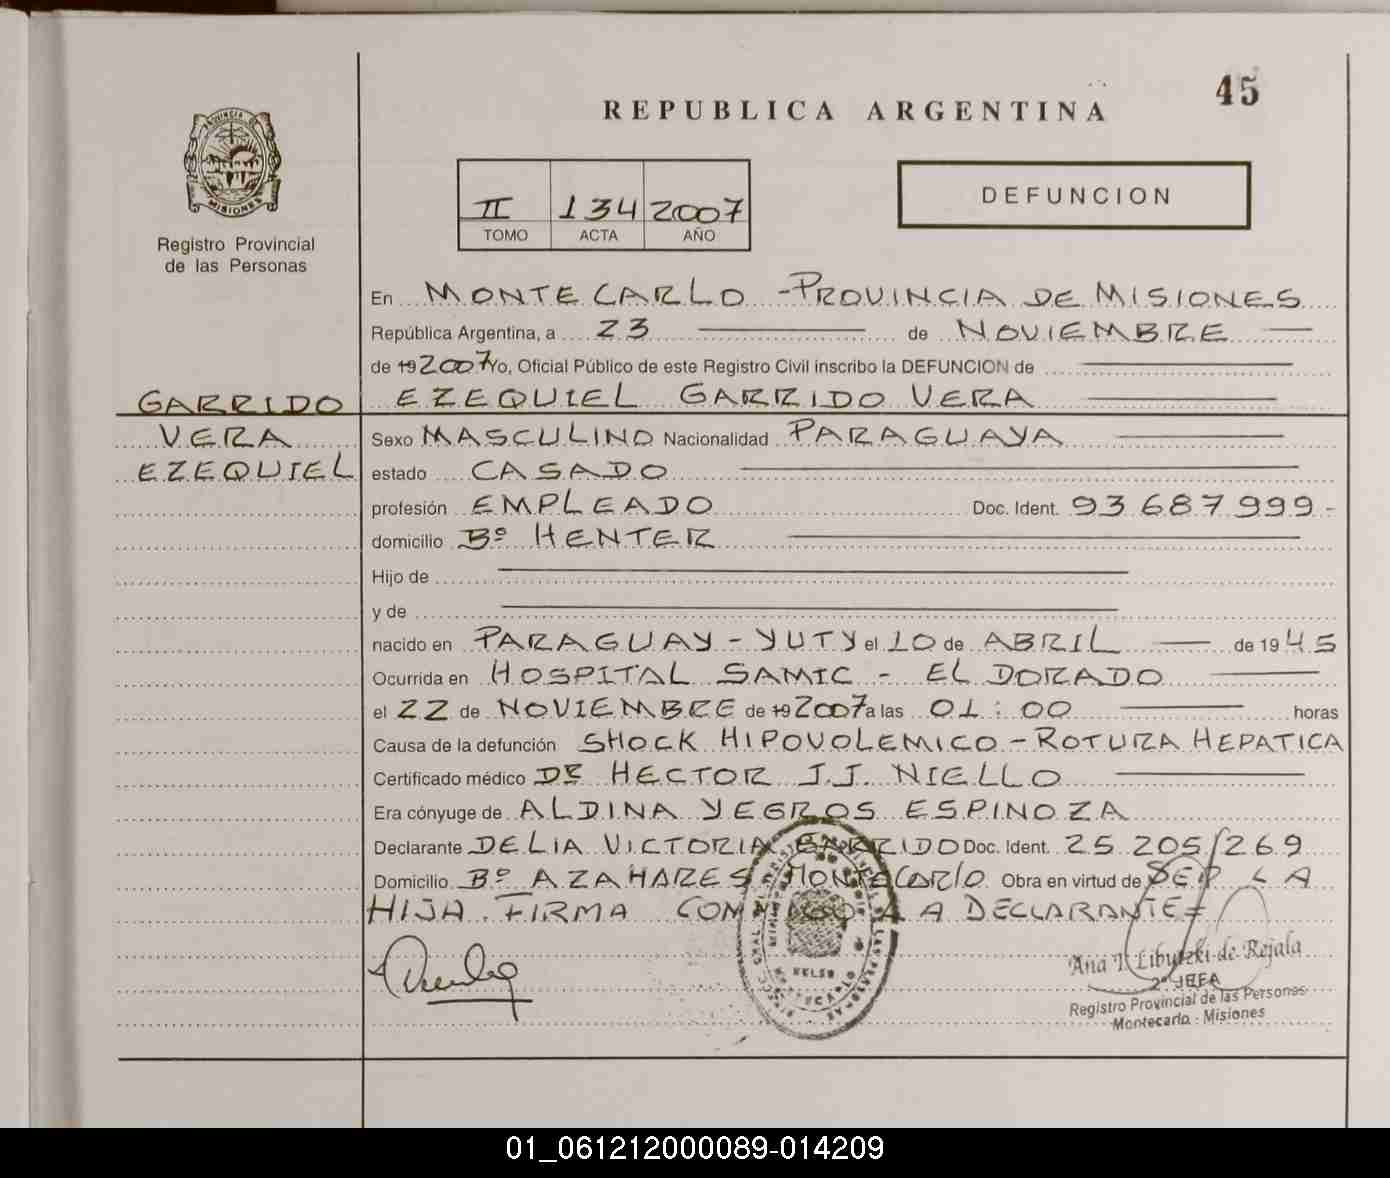 45
REPUBLICA ARGENTINA
PROVINCIA DE
MISIONES
Registro Provincial
de las Personas
II 134 2007
TOMO ACTA AÑO
DEFUNCION
En MONTECARLO - PROVINCIA DE MISIONES
República Argentina, a 23 de NOVIEMBRE
de 19 2007 Yo, Oficial Público de este Registro Civil inscribo la DEFUNCION de
GARRIDO
VERA
EZEQUIEL
EZEQUIEL GARRIDO VERA
Sexo MASCULINO Nacionalidad PARAGUAYA
estado CASADO
profesión EMPLEADO Doc. Ident. 93 687 999-
domicilio Bº HENTER
Hijo de
y de
nacido en PARAGUAY - YUTY el 10 de ABRIL de 1945
Ocurrida en HOSPITAL SAMIC - EL DORADO
el 22 de NOVIEMBRE de 19 2007 a las 01:00 horas
Causa de la defunción SHOCK HIPOVOLEMICO - ROTURA HEPATICA
Certificado médico DR HECTOR J.J. NIELLO
Era cónyuge de ALDINA YEGROS ESPINOZA
Declarante DELIA VICTORIA GARRIDO Doc. Ident. 25 205/269
Domicilio Bº AZAHARES MONTECARLO Obra en virtud de SER LA
HIJA. FIRMA CONMIGO LA DECLARANTE=
Ana T. Libutzki de Rejala
2º JEFA
Registro Provincial de las Personas
Montecarlo - Misiones
01_061212000089-014209